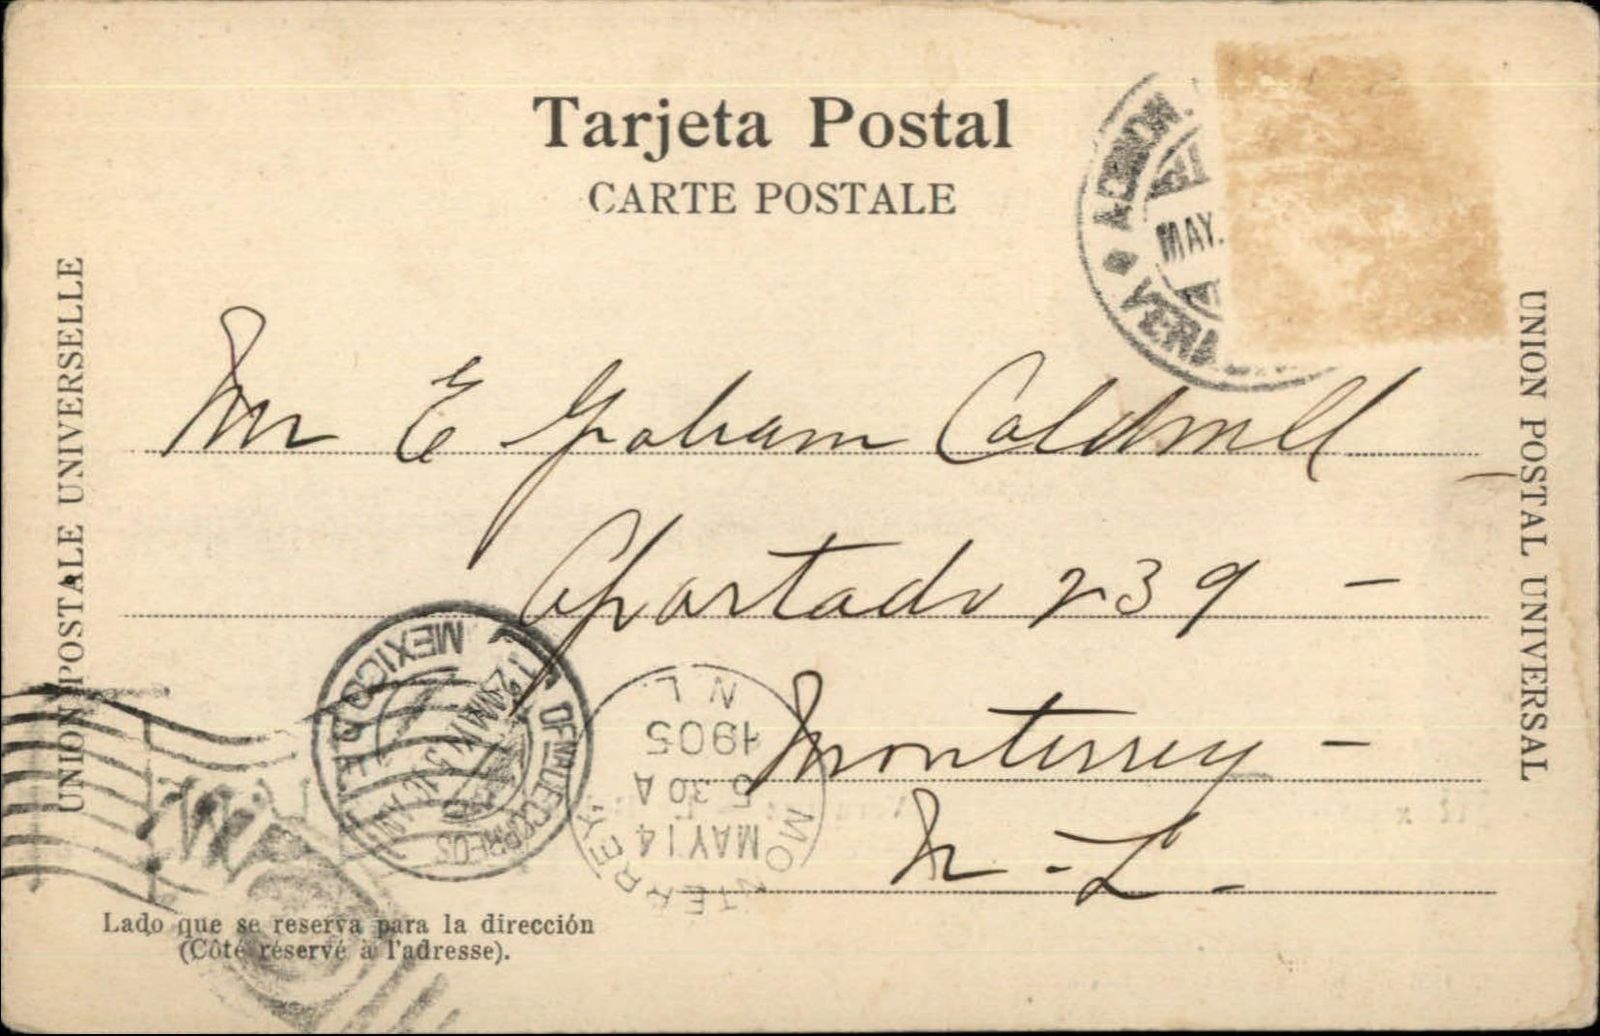 Tarjeta Postal
CARTE POSTALE
ADMON.
MAY.
UNION POSTALE UNIVERSELLE
UNION POSTAL UNIVERSAL
Mr E Graham Caldwell
Apartado 239 –
Monterrey –
N. L.
MEXICO D.F.
DE CORREOS
MONTERREY.
MAY 14
5 30 A
1905
N L.
Lado que se reserva para la dirección
(Côté réservé à l'adresse).